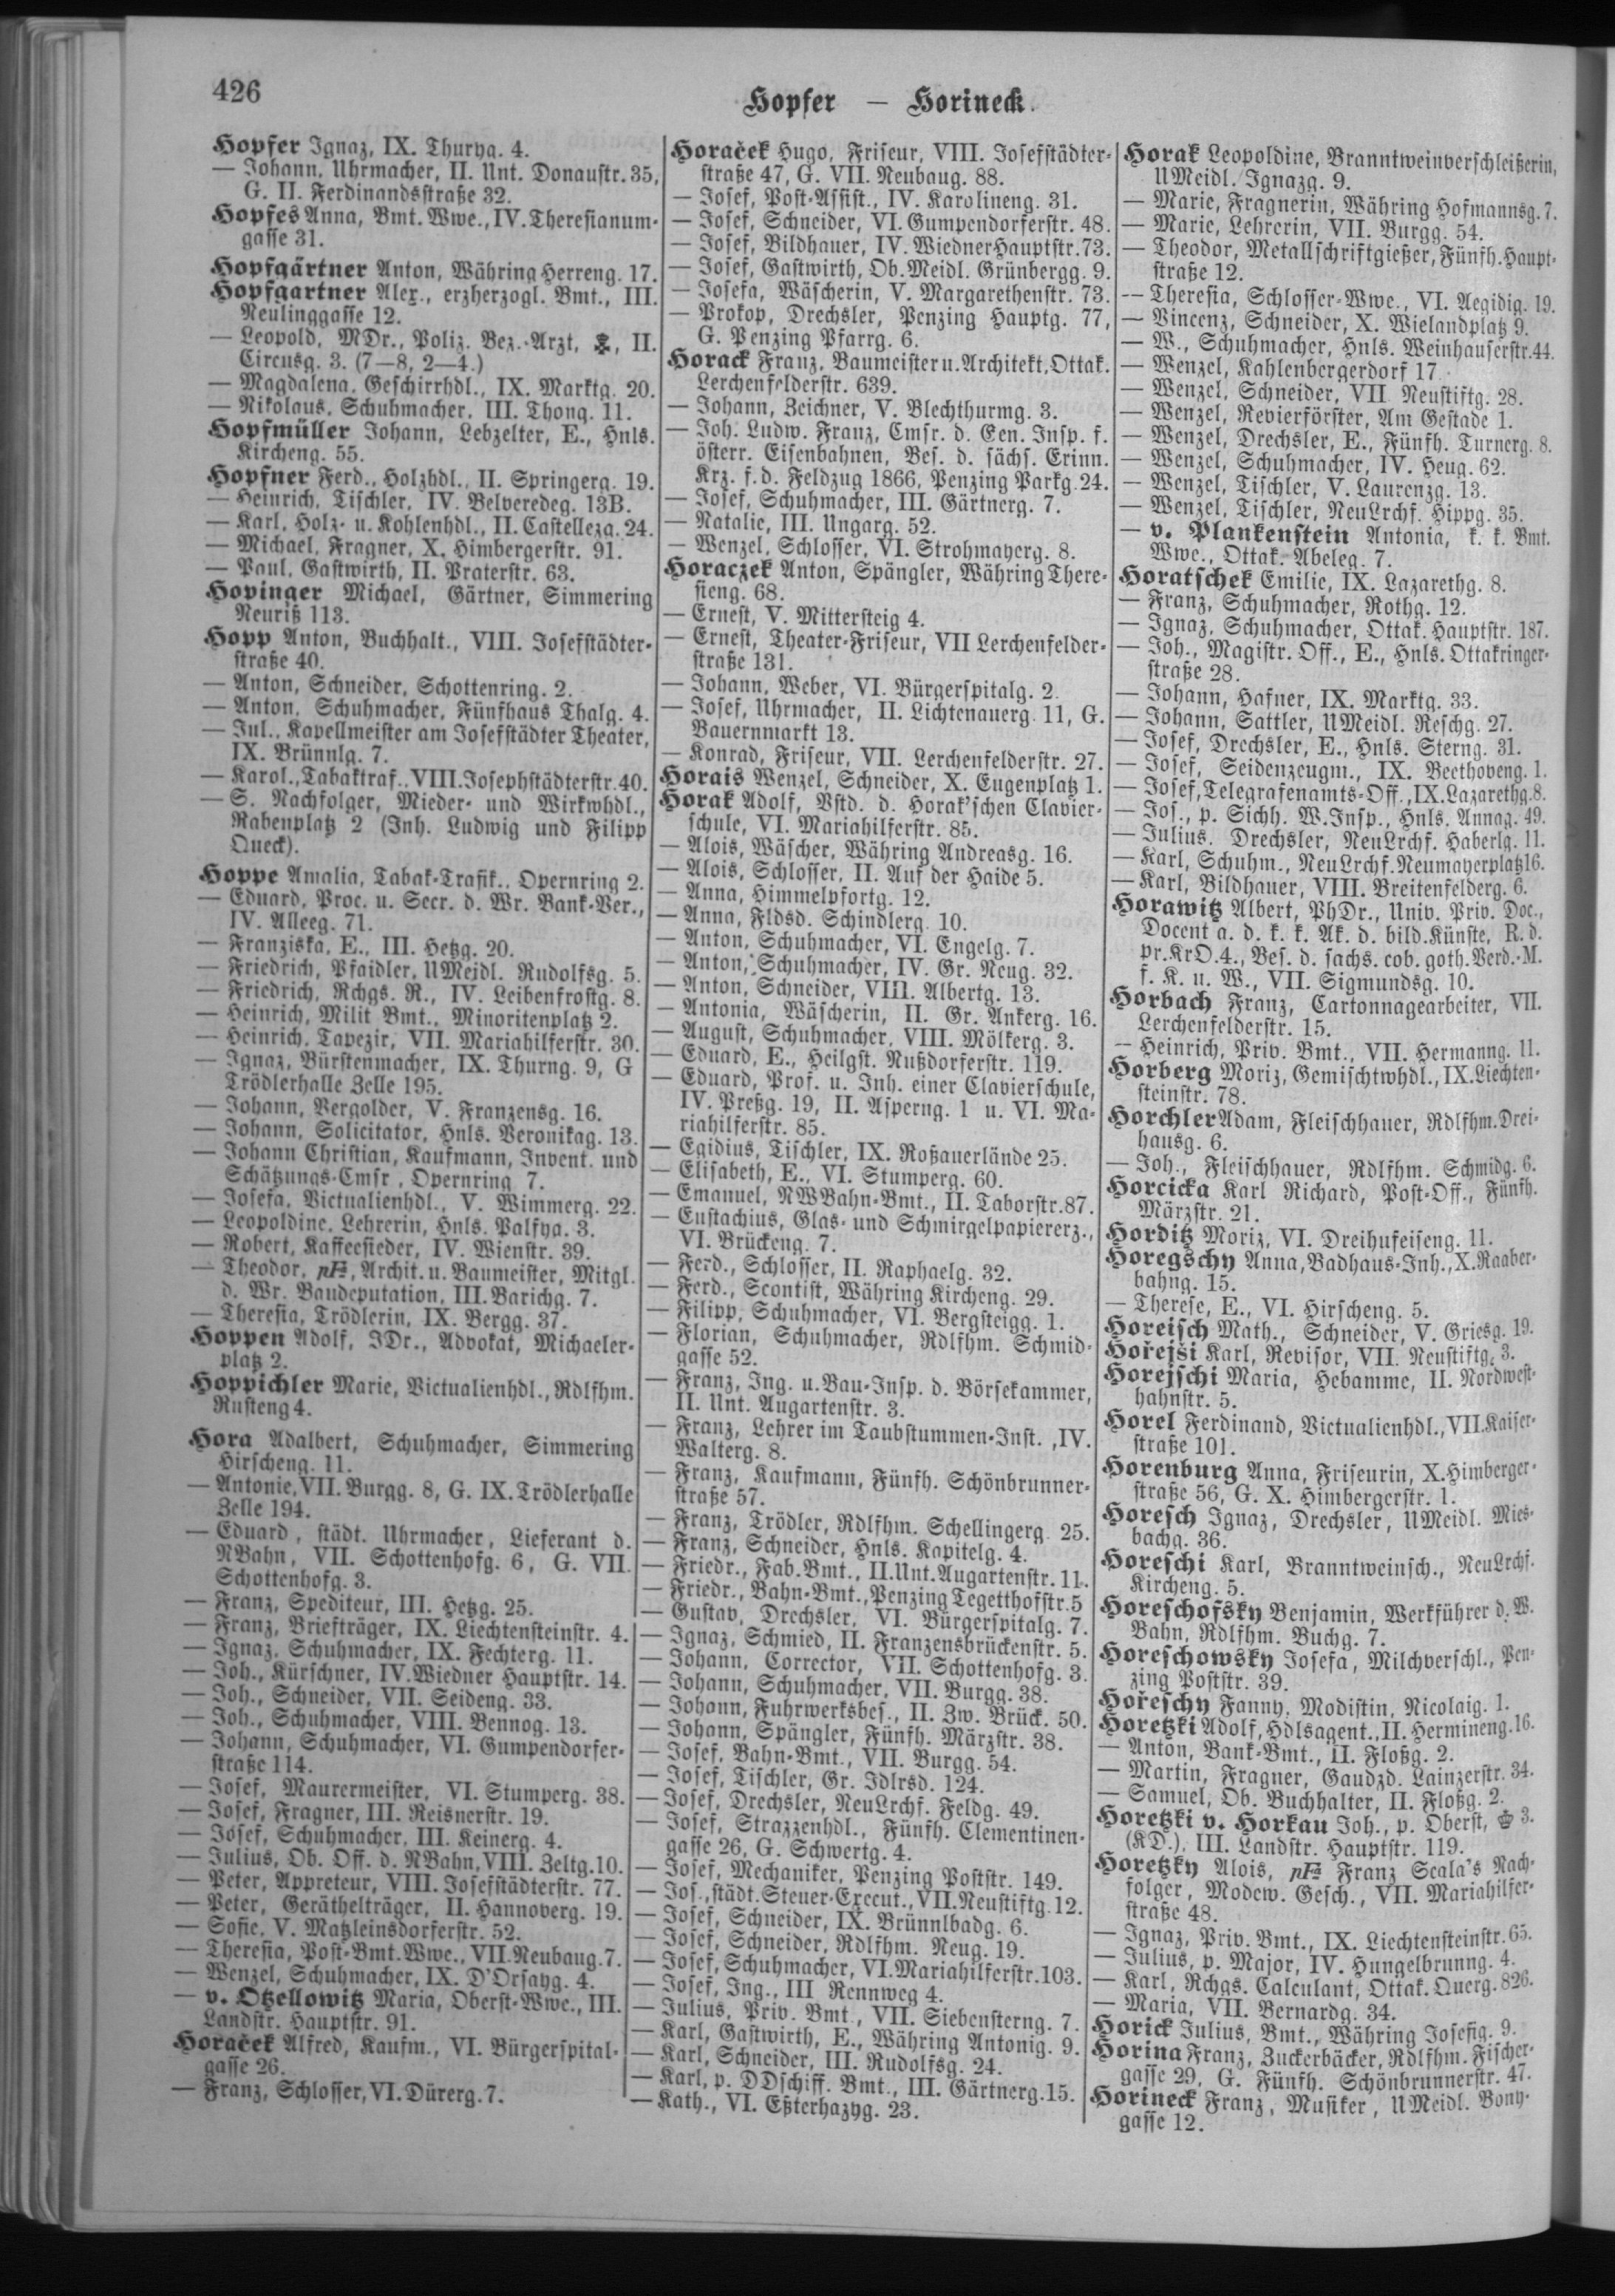 426
Hopfer — Horineck.
Hopfer Ignaz, IX. Thuryg. 4.
— Johann, Uhrmacher, II. Unt. Donaustr. 35,
G. II. Ferdinandsstraße 32.
Hopfes Anna, Bmt. Wwe., IV. Theresianum-
gasse 31.
Hopfgärtner Anton, Währing Herreng. 17.
Hopfgartner Alex., erzherzogl. Bmt., III.
Neulinggasse 12.
— Leopold, MDr., Poliz. Bez.-Arzt, II.
Circusg. 3. (7—8, 2—4.)
— Magdalena, Geschirrhdl., IX. Marktg. 20.
— Nikolaus, Schuhmacher, III. Thong. 11.
Hopfmüller Johann, Lebzelter, E., Hnls.
Kircheng. 55.
Hopfner Ferd., Holzhdl., II. Springerg. 19.
— Heinrich, Tischler, IV. Belveredeg. 13B.
— Karl, Holz- u. Kohlenhdl., II. Castellezg. 24.
— Michael, Fragner, X. Himbergerstr. 91.
— Paul, Gastwirth, II. Praterstr. 63.
Hopinger Michael, Gärtner, Simmering
Neuriß 113.
Hopp Anton, Buchhalt., VIII. Josefstädter-
straße 40.
— Anton, Schneider, Schottenring. 2.
— Anton, Schuhmacher, Fünfhaus Thalg. 4.
— Jul., Kapellmeister am Josefstädter Theater,
IX. Brünnlg. 7.
— Karol., Tabaktraf., VIII. Josephstädterstr. 40.
— S. Nachfolger, Mieder- und Wirkwhdl.,
Rabenplatz 2 (Inh. Ludwig und Filipp
Queck).
Hoppe Amalia, Tabak-Trafik., Opernring 2.
— Eduard, Proc. u. Secr. d. Wr. Bank-Ver.,
IV. Alleeg. 71.
— Franziska, E., III. Hetzg. 20.
— Friedrich, Pfaidler, UMeidl. Rudolfsg. 5.
— Friedrich, Rchgs. R., IV. Leibenfrostg. 8.
— Heinrich, Milit Bmt., Minoritenplatz 2.
— Heinrich, Tapezir, VII. Mariahilferstr. 30.
— Ignaz, Bürstenmacher, IX. Thurng. 9, G
Trödlerhalle Zelle 195.
— Johann, Vergolder, V. Franzensg. 16.
— Johann, Solicitator, Hnls. Veronikag. 13.
— Johann Christian, Kaufmann, Invent. und
Schätzungs-Cmsr, Opernring 7.
— Josefa, Victualienhdl., V. Wimmerg. 22.
— Leopoldine, Lehrerin, Hnls. Palfyg. 3.
— Robert, Kaffeesieder, IV. Wienstr. 39.
— Theodor, pFa, Archit. u. Baumeister, Mitgl.
d. Wr. Baudeputation, III. Barichg. 7.
— Theresia, Trödlerin, IX. Bergg. 37.
Hoppen Adolf, JDr., Advokat, Michaeler-
platz 2.
Hoppichler Marie, Victualienhdl., Rdlfhm.
Rusteng 4.
Hora Adalbert, Schuhmacher, Simmering
Hirscheng. 11.
— Antonie, VII. Burgg. 8, G. IX. Trödlerhalle
Zelle 194.
— Eduard, städt. Uhrmacher, Lieferant d.
NBahn, VII. Schottenhofg. 6, G. VII.
Schottenhofg. 3.
— Franz, Spediteur, III. Hetzg. 25.
— Franz, Briefträger, IX. Liechtensteinstr. 4.
— Ignaz, Schuhmacher, IX. Fechterg. 11.
— Joh., Kürschner, IV. Wiedner Hauptstr. 14.
— Joh., Schneider, VII. Seideng. 33.
— Joh., Schuhmacher, VIII. Bennog. 13.
— Johann, Schuhmacher, VI. Gumpendorfer-
straße 114.
— Josef, Maurermeister, VI. Stumperg. 38.
— Josef, Fragner, III. Reisnerstr. 19.
— Josef, Schuhmacher, III. Keinerg. 4.
— Julius, Ob. Off. d. NBahn, VIII. Zeltg. 10.
— Peter, Appreteur, VIII. Josefstädterstr. 77.
— Peter, Geräthelträger, II. Hannoverg. 19.
— Sofie, V. Matzleinsdorferstr. 52.
— Theresia, Post-Bmt. Wwe., VII. Neubaug. 7.
— Wenzel, Schuhmacher, IX. D'Orsayg. 4.
— v. Otzellowitz Maria, Oberst-Wwe., III.
Landstr. Hauptstr. 91.
Horaček Alfred, Kaufm., VI. Bürgerspital-
gasse 26.
— Franz, Schlosser, VI. Dürerg. 7.
Horaček Hugo, Friseur, VIII. Josefstädter-
straße 47, G. VII. Neubaug. 88.
— Josef, Post-Assist., IV. Karolineng. 31.
— Josef, Schneider, VI. Gumpendorferstr. 48.
— Josef, Bildhauer, IV. Wiedner Hauptstr. 73.
— Josef, Gastwirth, Ob. Meidl. Grünbergg. 9.
— Josefa, Wäscherin, V. Margarethenstr. 73.
— Prokop, Drechsler, Penzing Hauptg. 77,
G. Penzing Pfarrg. 6.
Horack Franz, Baumeister u. Architekt, Ottak.
Lerchenfelderstr. 639.
— Johann, Zeichner, V. Blechthurmg. 3.
— Joh. Ludw. Franz, Cmsr. d. Gen. Insp. f.
österr. Eisenbahnen, Bes. d. sächs. Erinn.
Krz. f. d. Feldzug 1866, Penzing Parkg. 24.
— Josef, Schuhmacher, III. Gärtnerg. 7.
— Natalie, III. Ungarg. 52.
— Wenzel, Schlosser, VI. Strohmayerg. 8.
Horaczek Anton, Spängler, Währing There-
sieng. 68.
— Ernest, V. Mittersteig 4.
— Ernest, Theater-Friseur, VII Lerchenfelder-
straße 131.
— Johann, Weber, VI. Bürgerspitalg. 2.
— Josef, Uhrmacher, II. Lichtenauerg. 11, G.
Bauernmarkt 13.
— Konrad, Friseur, VII. Lerchenfelderstr. 27.
Horais Wenzel, Schneider, X. Eugenplatz 1.
Horak Adolf, Vstd. d. Horak'schen Clavier-
schule, VI. Mariahilferstr. 85.
— Alois, Wäscher, Währing Andreasg. 16.
— Alois, Schlosser, II. Auf der Haide 5.
— Anna, Himmelpfortg. 12.
— Anna, Fldsd. Schindlerg. 10.
— Anton, Schuhmacher, VI. Engelg. 7.
— Anton, Schuhmacher, IV. Gr. Neug. 32.
— Anton, Schneider, VIII. Albertg. 13.
— Antonia, Wäscherin, II. Gr. Ankerg. 16.
— August, Schuhmacher, VIII. Mölkerg. 3.
— Eduard, E., Heilgst. Nußdorferstr. 119.
— Eduard, Prof. u. Inh. einer Clavierschule,
IV. Preßg. 19, II. Asperng. 1 u. VI. Ma-
riahilferstr. 85.
— Egidius, Tischler, IX. Roßauerlände 25.
— Elisabeth, E., VI. Stumperg. 60.
— Emanuel, NWBahn-Bmt., II. Taborstr. 87.
— Eustachius, Glas- und Schmirgelpapiererz.,
VI. Brückeng. 7.
— Ferd., Schlosser, II. Raphaelg. 32.
— Ferd., Scontist, Währing Kircheng. 29.
— Filipp, Schuhmacher, VI. Bergsteigg. 1.
— Florian, Schuhmacher, Rdlfhm. Schmid-
gasse 52.
— Franz, Ing. u. Bau-Insp. d. Börsekammer,
II. Unt. Augartenstr. 3.
— Franz, Lehrer im Taubstummen-Inst., IV.
Walterg. 8.
— Franz, Kaufmann, Fünfh. Schönbrunner-
straße 57.
— Franz, Trödler, Rdlfhm. Schellingerg. 25.
— Franz, Schneider, Hnls. Kapitelg. 4.
— Friedr., Fab. Bmt., II. Unt. Augartenstr. 11.
— Friedr., Bahn-Bmt., Penzing Tegetthofstr. 5
— Gustav, Drechsler, VI. Bürgerspitalg. 7.
— Ignaz, Schmied, II. Franzensbrückenstr. 5.
— Johann, Corrector, VII. Schottenhofg. 3.
— Johann, Schuhmacher, VII. Burgg. 38.
— Johann, Fuhrwerksbes., II. Zw. Brück. 50.
— Johann, Spängler, Fünfh. Märzstr. 38.
— Josef, Bahn-Bmt., VII. Burgg. 54.
— Josef, Tischler, Gr. Jdlrsd. 124.
— Josef, Drechsler, NeuLrchf. Feldg. 49.
— Josef, Strazzenhdl., Fünfh. Clementinen-
gasse 26, G. Schwertg. 4.
— Josef, Mechaniker, Penzing Poststr. 149.
— Jos., städt. Steuer-Execut., VII. Neustiftg. 12.
— Josef, Schneider, IX. Brünnlbadg. 6.
— Josef, Schneider, Rdlfhm. Neug. 19.
— Josef, Schuhmacher, VI. Mariahilferstr. 103.
— Josef, Ing., III Rennweg 4.
— Julius, Priv. Bmt., VII. Siebensterng. 7.
— Karl, Gastwirth, E., Währing Antonig. 9.
— Karl, Schneider, III. Rudolfsg. 24.
— Karl, p. DDschiff. Bmt., III. Gärtnerg. 15.
— Kath., VI. Eßterhazyg. 23.
Horak Leopoldine, Branntweinverschleißerin,
UMeidl. Ignazg. 9.
— Marie, Fragnerin, Währing Hofmannsg. 7.
— Marie, Lehrerin, VII. Burgg. 54.
— Theodor, Metallschriftgießer, Fünfh. Haupt-
straße 12.
— Theresia, Schlosser-Wwe., VI. Aegidig. 19.
— Vincenz, Schneider, X. Wielandplatz 9.
— W., Schuhmacher, Hnls. Weinhauserstr. 44.
— Wenzel, Kahlenbergerdorf 17.
— Wenzel, Schneider, VII Neustiftg. 28.
— Wenzel, Revierförster, Am Gestade 1.
— Wenzel, Drechsler, E., Fünfh. Turnerg. 8.
— Wenzel, Schuhmacher, IV. Heug. 62.
— Wenzel, Tischler, V. Laurenzg. 13.
— Wenzel, Tischler, NeuLrchf. Hippg. 35.
— v. Plankenstein Antonia, k. k. Bmt.
Wwe., Ottak. Abeleg. 7.
Horatschek Emilie, IX. Lazarethg. 8.
— Franz, Schuhmacher, Rothg. 12.
— Ignaz, Schuhmacher, Ottak. Hauptstr. 187.
— Joh., Magistr. Off., E., Hnls. Ottakringer-
straße 28.
— Johann, Hafner, IX. Marktg. 33.
— Johann, Sattler, UMeidl. Reschg. 27.
— Josef, Drechsler, E., Hnls. Sterng. 31.
— Josef, Seidenzeugm., IX. Beethoveng. 1.
— Josef, Telegrafenamts-Off., IX. Lazarethg. 8.
— Jos., p. Sichh. W. Insp., Hnls. Annag. 49.
— Julius, Drechsler, NeuLrchf. Haberlg. 11.
— Karl, Schuhm., NeuLrchf. Neumayerplatz 16.
— Karl, Bildhauer, VIII. Breitenfelderg. 6.
Horawitz Albert, PhDr., Univ. Priv. Doc.,
Docent a. d. k. k. Ak. d. bild. Künste, R. d.
pr. KrO. 4., Bes. d. sachs. cob. goth. Verd.-M.
f. K. u. W., VII. Sigmundsg. 10.
Horbach Franz, Cartonnagearbeiter, VII.
Lerchenfelderstr. 15.
— Heinrich, Priv. Bmt., VII. Hermanng. 11.
Horberg Moriz, Gemischtwhdl., IX. Liechten-
steinstr. 78.
Horchler Adam, Fleischhauer, Rdlfhm. Drei-
hausg. 6.
— Joh., Fleischhauer, Rdlfhm. Schmidg. 6.
Horcicka Karl Richard, Post-Off., Fünfh.
Märzstr. 21.
Horditz Moriz, VI. Dreihufeiseng. 11.
Horegschy Anna, Badhaus-Inh., X. Raaber-
bahng. 15.
— Therese, E., VI. Hirscheng. 5.
Horeisch Math., Schneider, V. Griesg. 19.
Hořejši Karl, Revisor, VII. Neustiftg. 3.
Horejschi Maria, Hebamme, II. Nordwest-
bahnstr. 5.
Horel Ferdinand, Victualienhdl., VII. Kaiser-
straße 101.
Horenburg Anna, Friseurin, X. Himberger-
straße 56, G. X. Himbergerstr. 1.
Horesch Ignaz, Drechsler, UMeidl. Mies-
bachg. 36.
Horeschi Karl, Branntweinsch., NeuLrchf.
Kircheng. 5.
Horeschofsky Benjamin, Werkführer d. W.
Bahn, Rdlfhm. Buchg. 7.
Horeschowsky Josefa, Milchverschl., Pen-
zing Poststr. 39.
Hořeschy Fanny, Modistin, Nicolaig. 1.
Horetzki Adolf, Hdlsagent., II. Hermineng. 16.
— Anton, Bank-Bmt., II. Floßg. 2.
— Martin, Fragner, Gaudzd. Lainzerstr. 34.
— Samuel, Ob. Buchhalter, II. Floßg. 2.
Horetzki v. Horkau Joh., p. Oberst, 3.
(KD.), III. Landstr. Hauptstr. 119.
Horetzky Alois, pFa Franz Scala's Nach-
folger, Modew. Gesch., VII. Mariahilfer-
straße 48.
— Ignaz, Priv. Bmt., IX. Liechtensteinstr. 65.
— Julius, p. Major, IV. Hungelbrunng. 4.
— Karl, Rchgs. Calculant, Ottak. Querg. 826.
— Maria, VII. Bernardg. 34.
Horick Julius, Bmt., Währing Josefig. 9.
Horina Franz, Zuckerbäcker, Rdlfhm. Fischer-
gasse 29, G. Fünfh. Schönbrunnerstr. 47.
Horineck Franz, Musiker, UMeidl. Bony-
gasse 12.